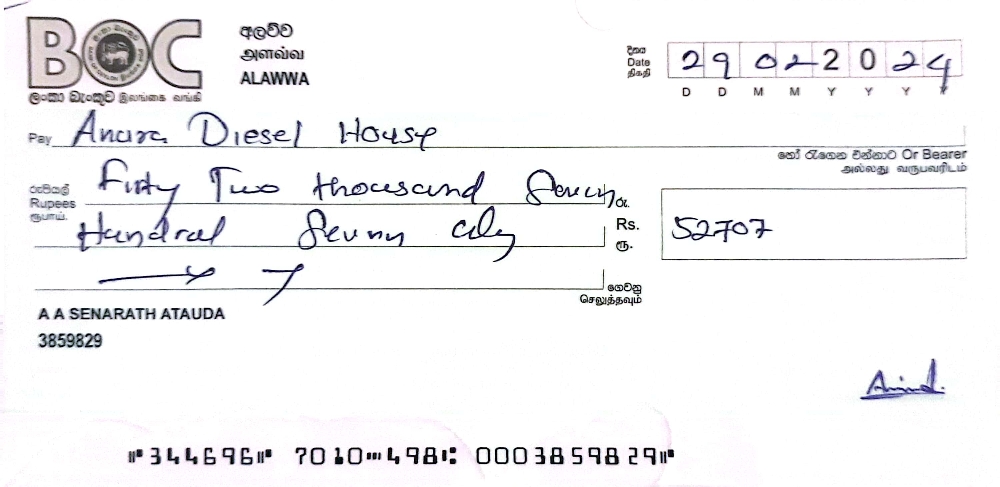 BOC
ලංකා බැංකුව இலங்கை வங்கி
අලව්ව
அளவ்வ
ALAWWA
දිනය
Date
திகதி
29 02 2024
D D M M Y Y Y Y
Pay Anura Diesel House
හෝ රැගෙන එන්නාට Or Bearer
அல்லது வருபவரிடம்
රුපියල්
Rupees
ரூபாய்.
Fifty Two thousand Seven
Hundred Seven only
රු.
Rs.
ரூ.
52707
ගෙවනු
செலுத்தவும்
A A SENARATH ATAUDA
3859829
⑈344696⑈ 7010⑉498⑆ 0003859829⑈